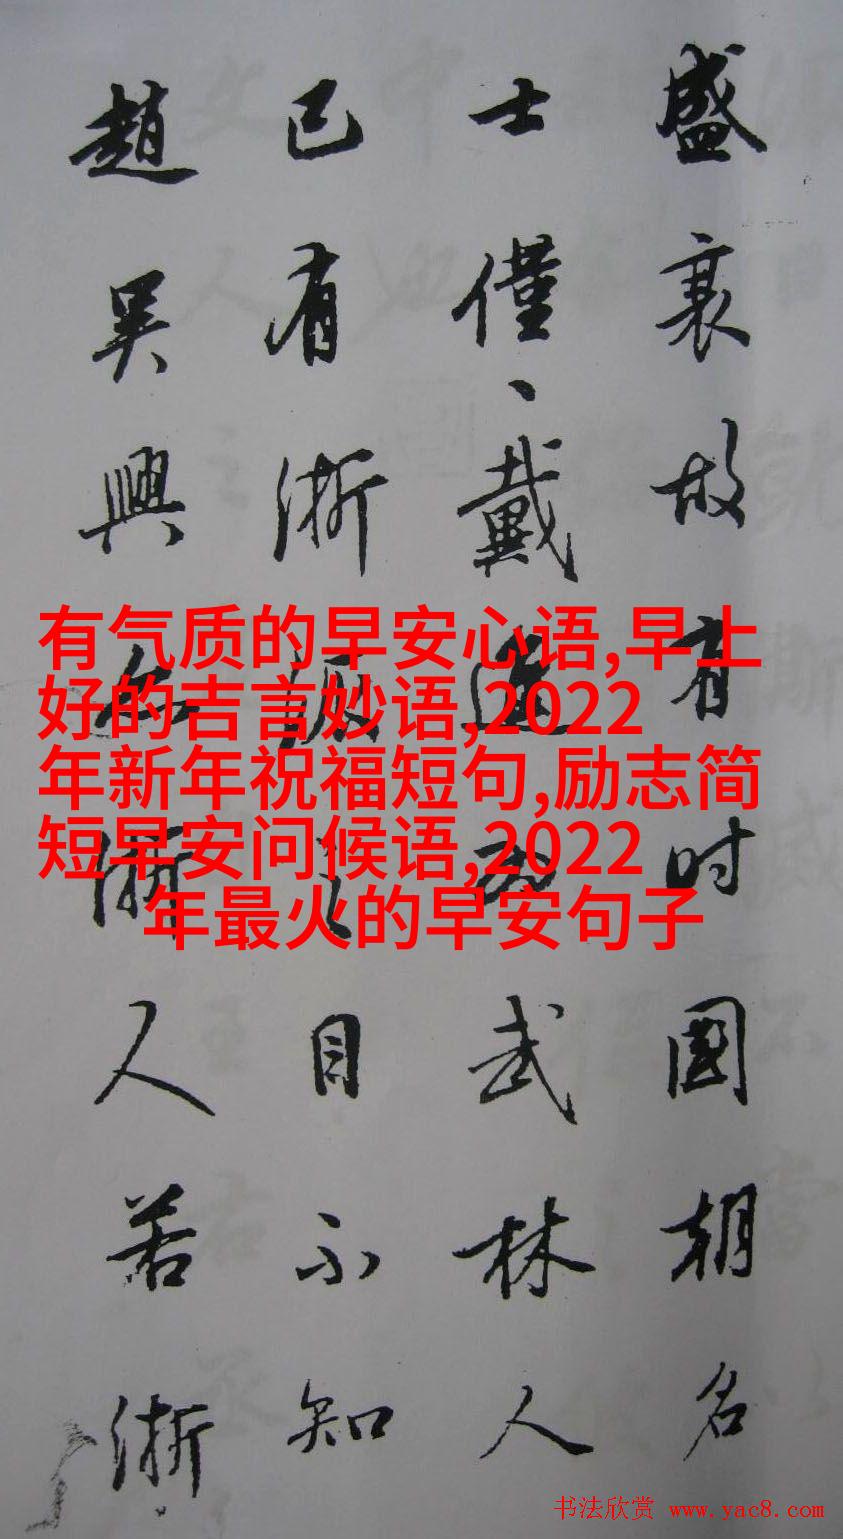 盛衰故有时國朝名
士僅、戴進为武林人
已有浙派之目不知
趙吴興亦浙人若浙
有气质的早安心语,早上
好的吉言妙语,2022
年新年祝福短句,励志简
短早安问候语,2022
年最火的早安句子
书法欣赏 www.yac8.com